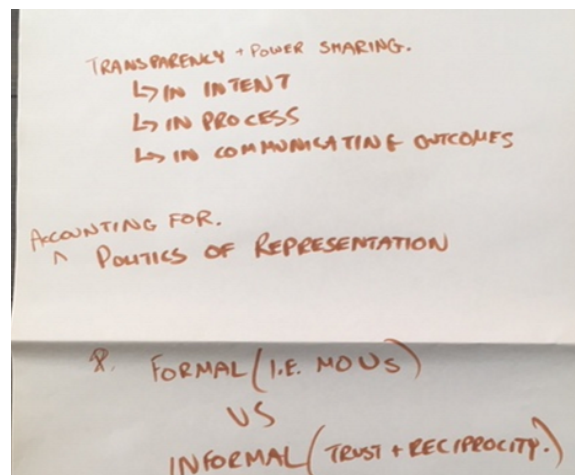 TRANSPARENCY + POWER SHARING.
↳ IN INTENT
↳ IN PROCESS
↳ IN COMMUNICATING OUTCOMES
ACCOUNTING FOR.
^ POLITICS OF REPRESENTATION
FORMAL (I.E. MOUS)
VS
INFORMAL (TRUST + RECIPROCITY.)